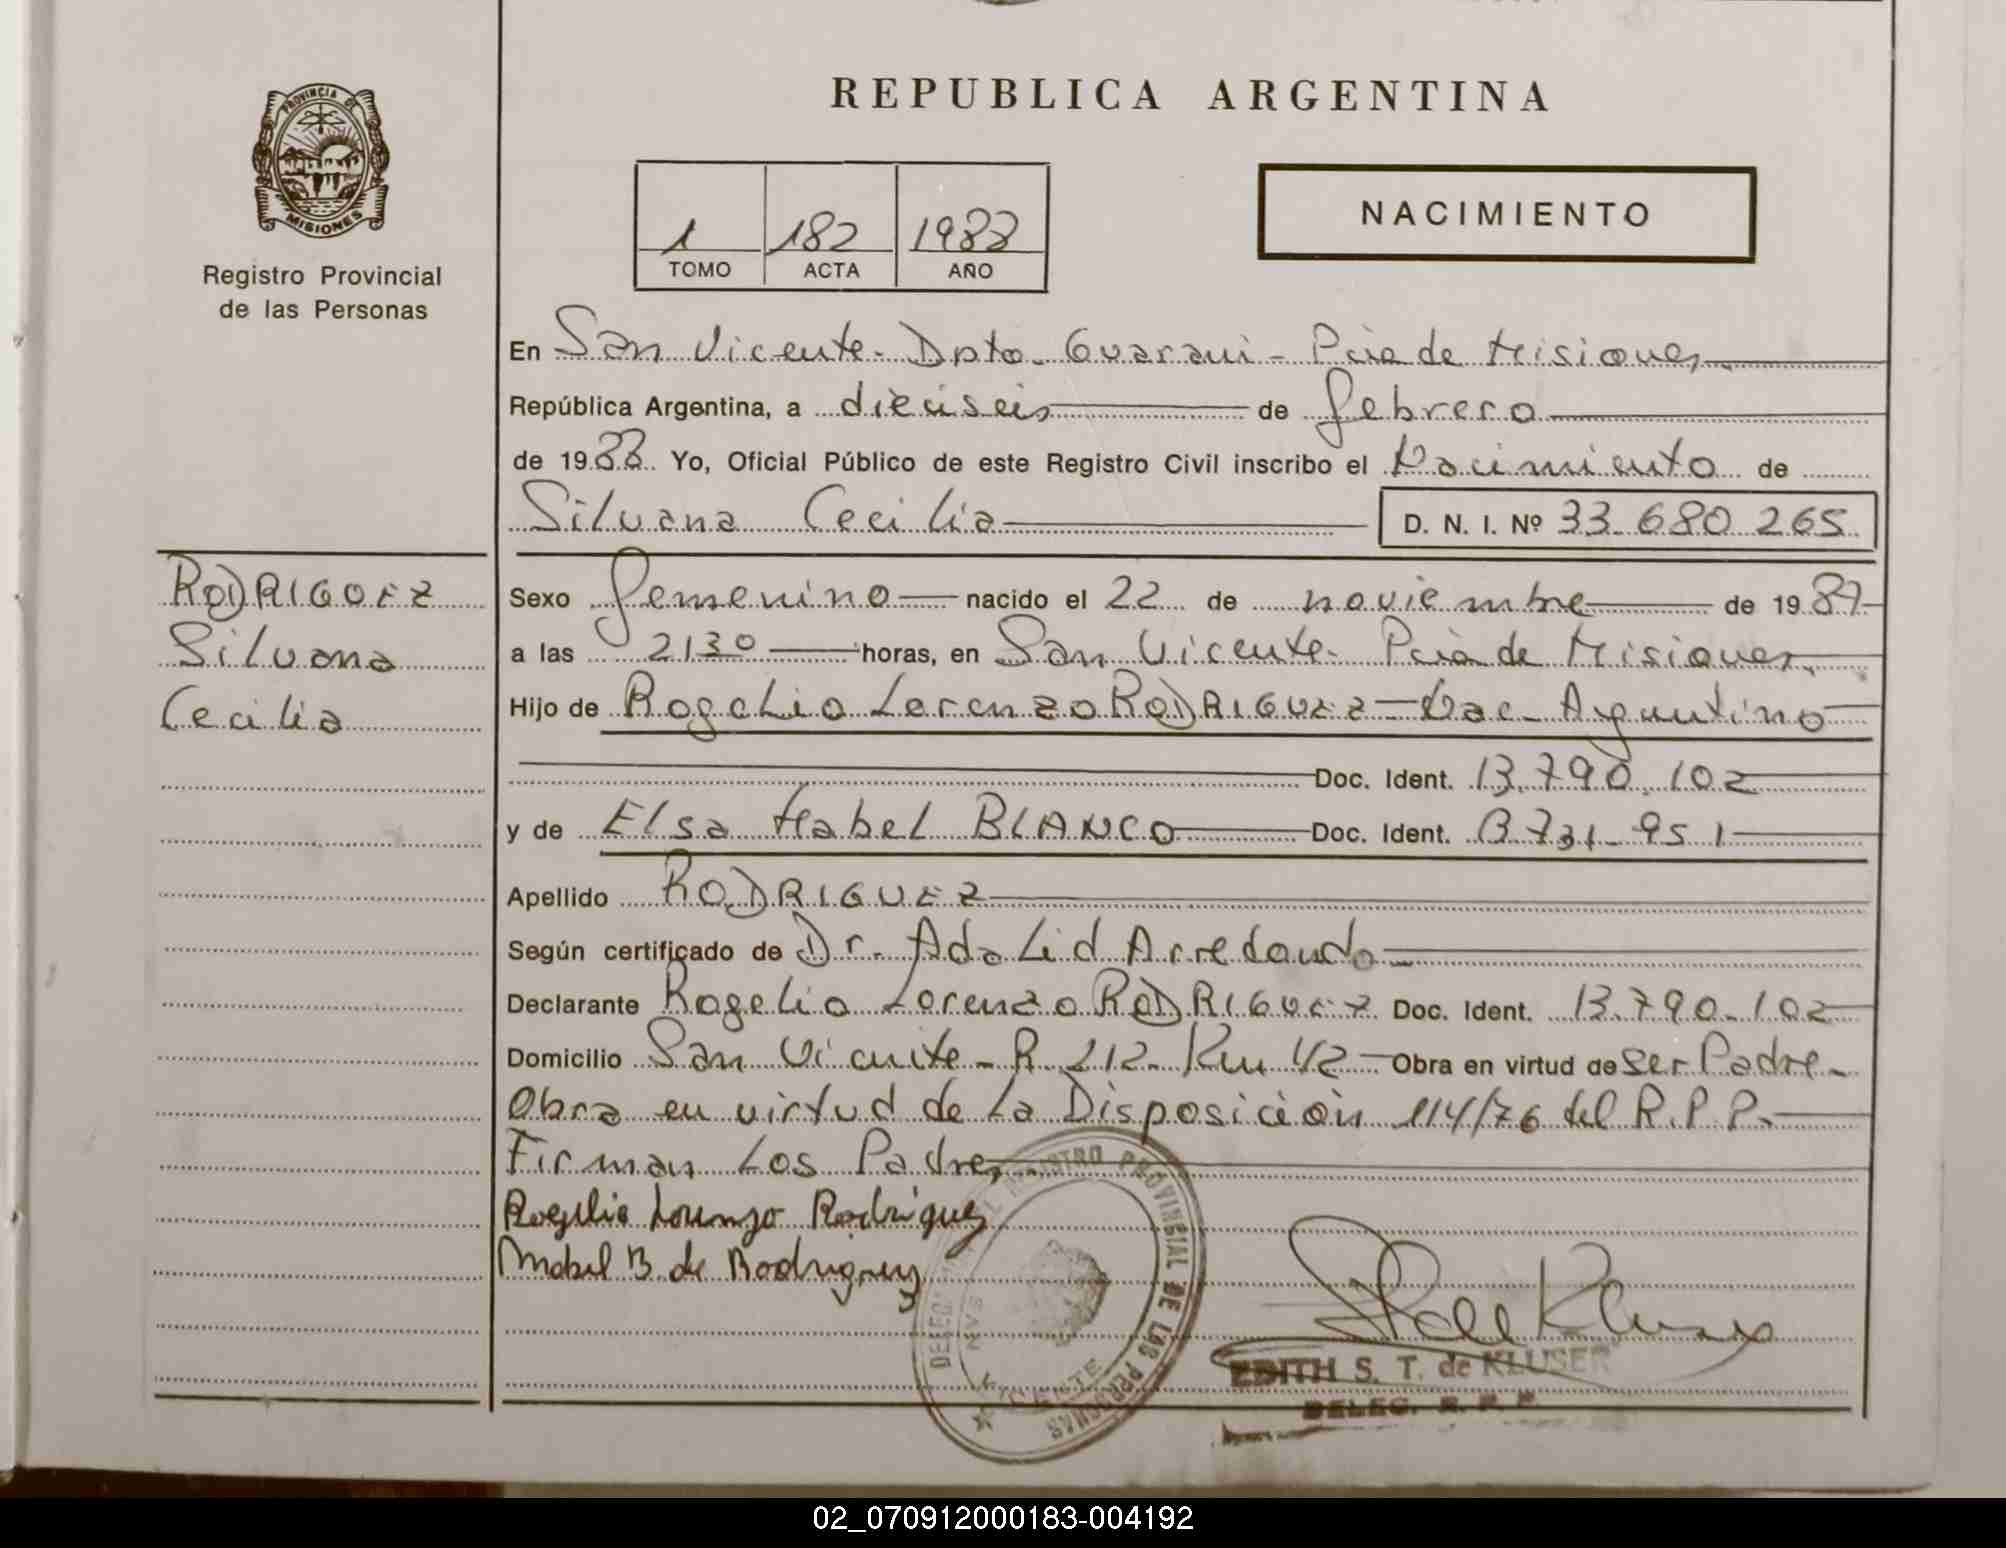 REPUBLICA ARGENTINA
PROVINCIA DE
MISIONES
Registro Provincial
de las Personas
1 182 1988
TOMO ACTA AÑO
NACIMIENTO
En San Vicente - Dpto. Guarani - Pcia de Misiones
República Argentina, a dieciseis de febrero
de 1988. Yo, Oficial Público de este Registro Civil inscribo el Nacimiento de
Silvana Cecilia D. N. I. Nº 33.680.265
RODRIGUEZ
Silvana
Cecilia
Sexo femenino nacido el 22 de noviembre de 1987
a las 2130 horas, en San Vicente - Pcia de Misiones
Hijo de Rogelio Lorenzo RODRIGUEZ - Nac. Argentino
Doc. Ident. 13.790.102
y de Elsa Mabel BLANCO Doc. Ident. 13.731.951
Apellido RODRIGUEZ
Según certificado de Dr. Adalid Arredondo
Declarante Rogelio Lorenzo RODRIGUEZ Doc. Ident. 13.790.102
Domicilio San Vicente - R. 212 - Km 1/2 Obra en virtud de ser Padre -
Obra en virtud de la Disposición 114/76 del R.P.P.
Firman los Padres
Rogelio Lorenzo Rodriguez
Mabel B de Rodriguez
REGISTRO PROVINCIAL DE LAS PERSONAS
SAN VICENTE
EDITH S. T. de KLUSER
DELEG. R. P. P.
02_070912000183-004192